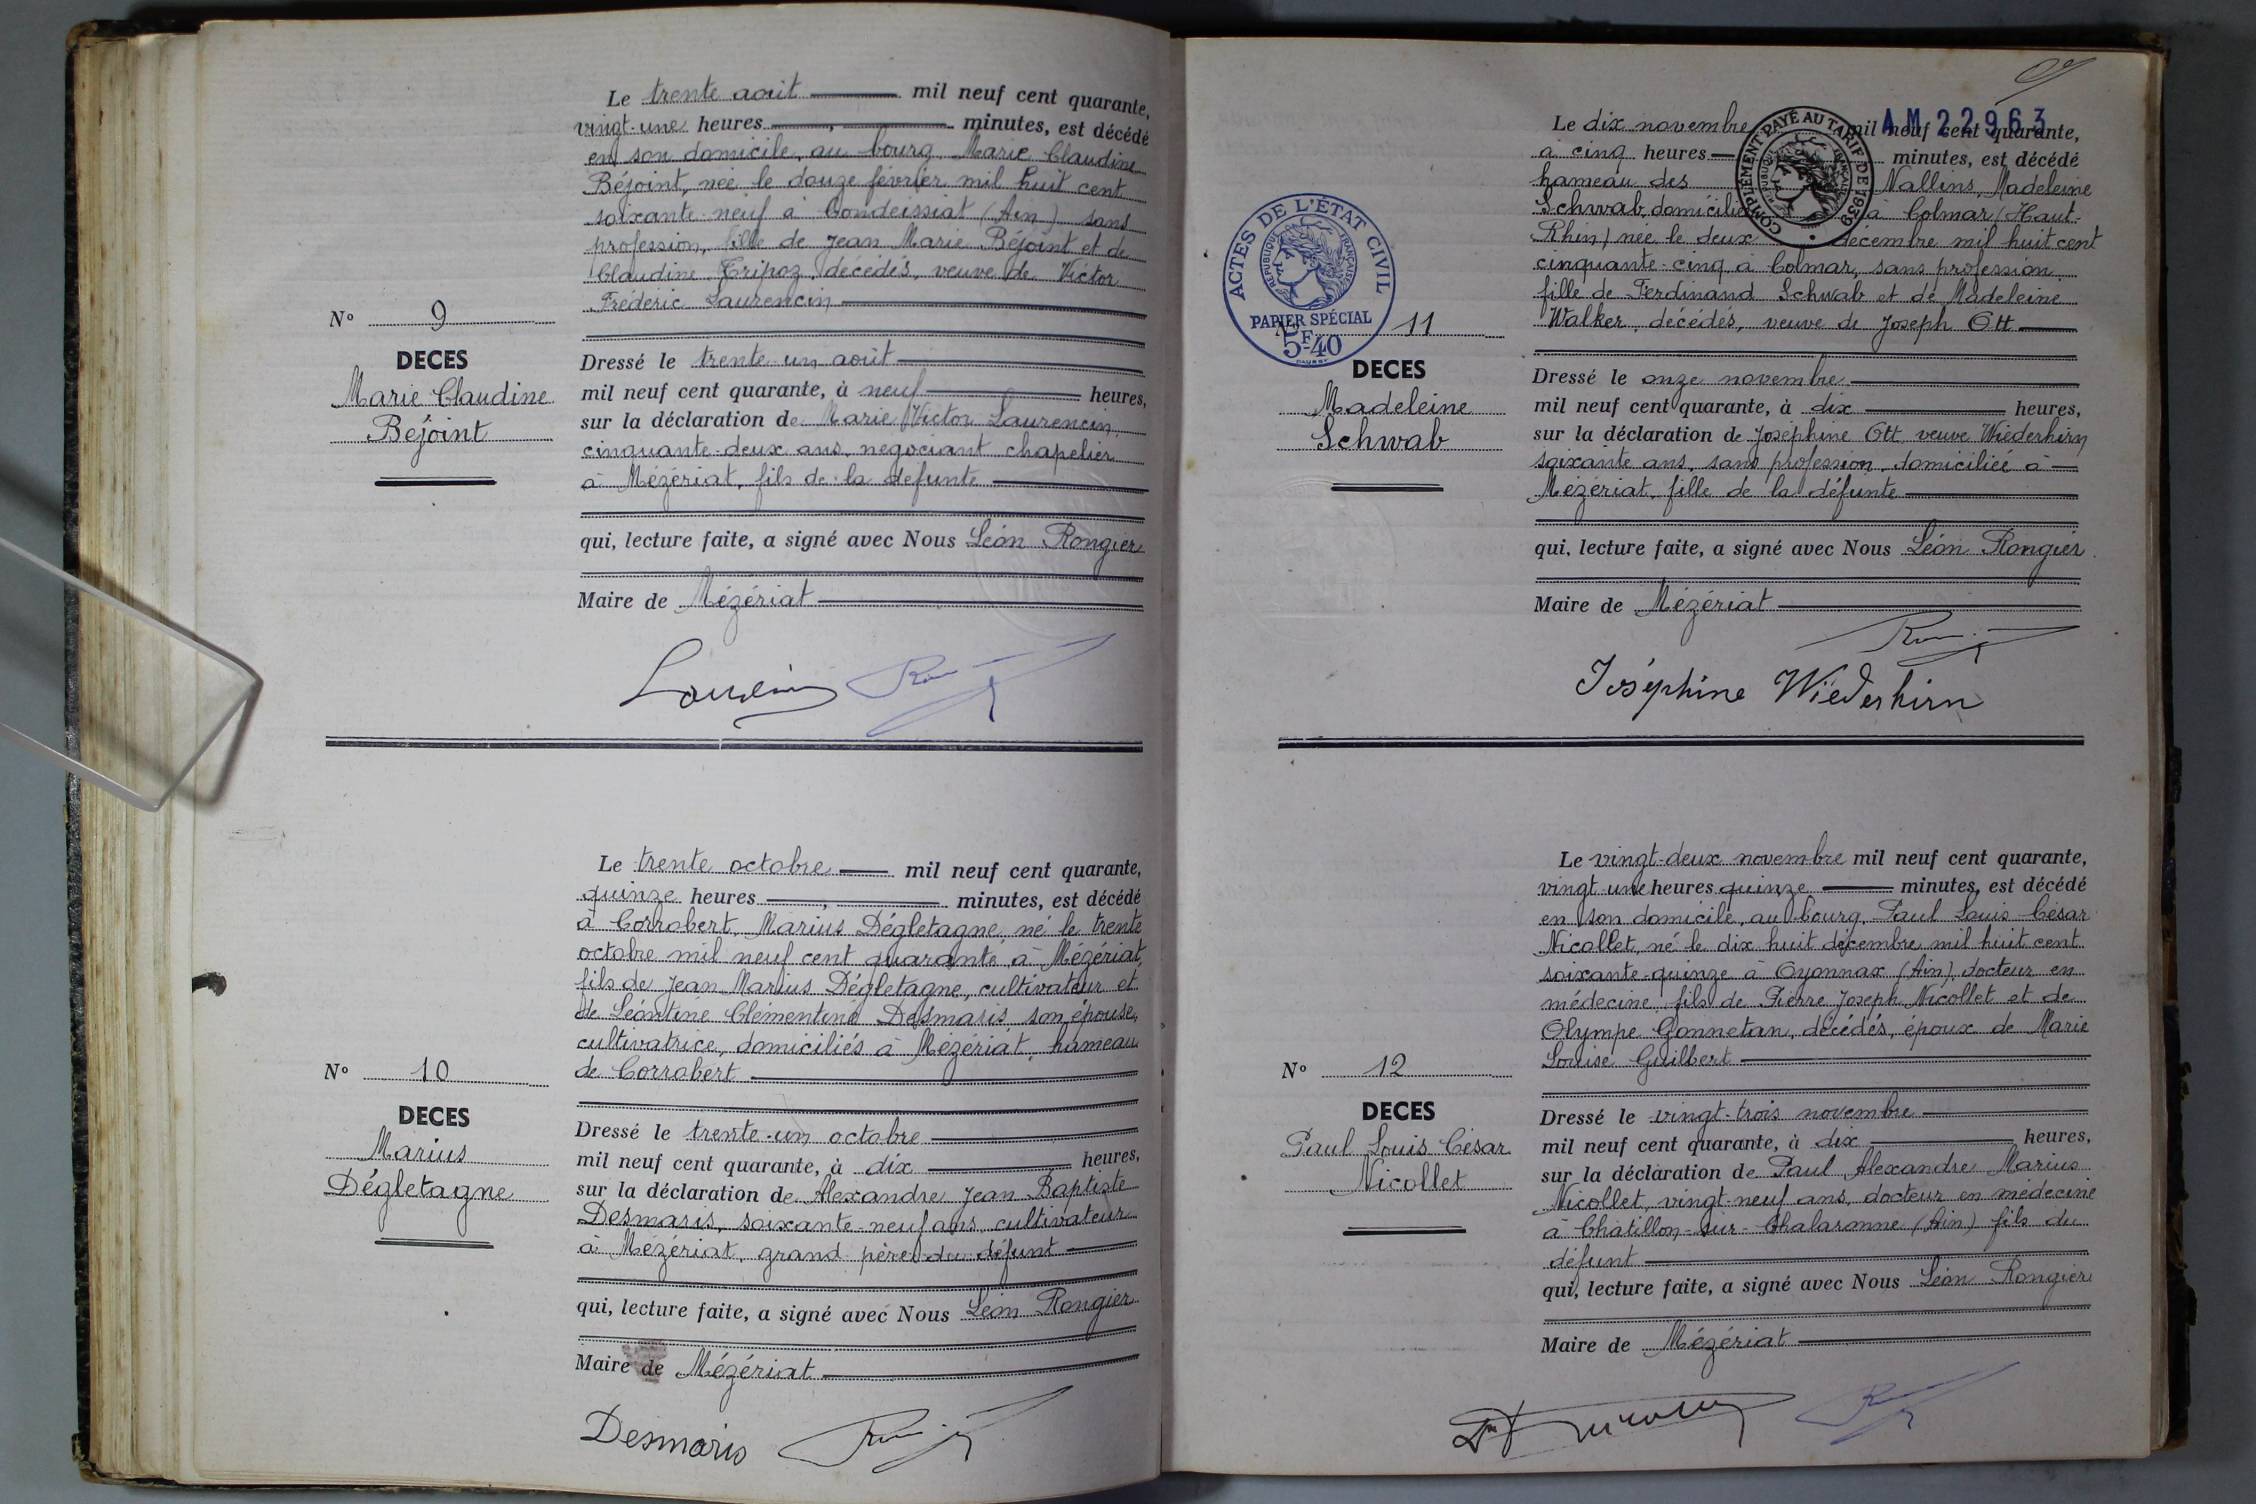 Le trente août mil neuf cent quarante,
vingt-une heures , minutes, est décédé
en son domicile, au bourg, Marie Claudine
Béjoint, née le douze février mil huit cent
soixante-neuf à Condeissiat (Ain) sans
profession, fille de Jean Marie Béjoint et de
Claudine Tripoz, décédés, veuve de Victor
Frédéric Laurencin
N° 9
DECES
Marie Claudine
Béjoint
Dressé le trente-un août
mil neuf cent quarante, à neuf heures,
sur la déclaration de Marie Victor Laurencin,
cinquante-deux ans, négociant chapelier
à Mézériat, fils de la défunte
qui, lecture faite, a signé avec Nous Léon Rongier
Maire de Mézériat
Le trente octobre mil neuf cent quarante,
quinze heures , minutes, est décédé
à Corrobert, Marius Dégletagne, né le trente
octobre mil neuf cent quarante, à Mézériat,
fils de Jean Marius Dégletagne, cultivateur et
de Léontine Clémentine Desmaris son épouse,
cultivatrice, domiciliés à Mézériat, hameau
de Corrobert
N° 10
DECES
Marius
Dégletagne
Dressé le trente-un octobre
mil neuf cent quarante, à dix heures,
sur la déclaration de Alexandre Jean Baptiste
Desmaris, soixante-neuf ans, cultivateur
à Mézériat, grand père du défunt
qui, lecture faite, a signé avec Nous Léon Rongier
Maire de Mézériat
Desmaris
AM 22963
COMPLÉMENT PAYÉ AU TARIF DE 1939
Le dix novembre mil neuf cent quarante,
à cinq heures minutes, est décédé
hameau des Nallins, Madeleine
Schwab, domiciliée à Colmar (Haut-
Rhin) née le deux décembre mil huit cent
cinquante-cinq à Colmar, sans profession
fille de Ferdinand Schwab et de Madeleine
Walker, décédés, veuve de Joseph Ott
ACTES DE L'ÉTAT CIVIL
RÉPUBLIQUE FRANÇAISE
PAPIER SPÉCIAL
5F40
N° 11
DECES
Madeleine
Schwab
Dressé le onze novembre
mil neuf cent quarante, à dix heures,
sur la déclaration de Joséphine Ott veuve Wiederhirn
soixante ans, sans profession, domiciliée à
Mézériat, fille de la défunte
qui, lecture faite, a signé avec Nous Léon Rongier
Maire de Mézériat
Joséphine Wiederhirn
Le vingt-deux novembre mil neuf cent quarante,
vingt-une heures quinze minutes, est décédé
en son domicile, au bourg, Paul Louis César
Nicollet, né le dix huit décembre mil huit cent
soixante-quinze à Oyonnax (Ain), docteur en
médecine, fils de Pierre Joseph Nicollet et de
Olympe Gonnetan, décédés, époux de Marie
Louise Guilbert
N° 12
DECES
Paul Louis César
Nicollet
Dressé le vingt-trois novembre
mil neuf cent quarante, à dix heures,
sur la déclaration de Paul Alexandre Marius
Nicollet, vingt-neuf ans, docteur en médecine
à Chatillon-sur-Chalaronne (Ain) fils du
défunt
qui, lecture faite, a signé avec Nous Léon Rongier
Maire de Mézériat